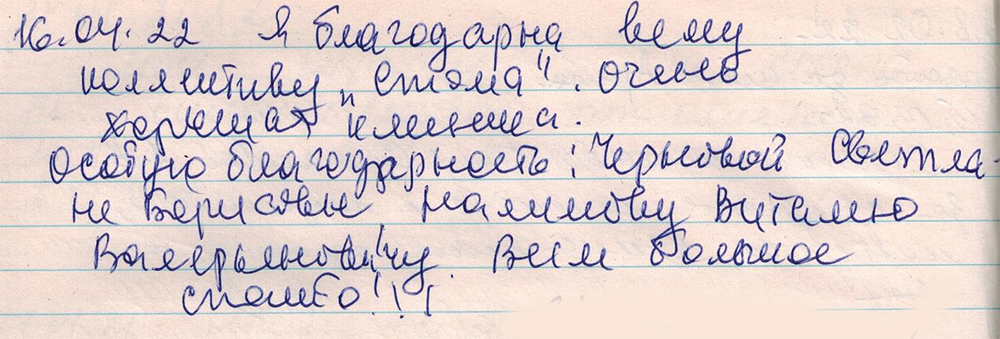 16.04.22 Я благодарна всему
коллективу „Стома“. Очень
хорошая клиника.
Особую благодарность: Черновой Светла-
не Борисовне, Маликову Виталию
Валерьяновичу. Всем большое
спасибо!!!